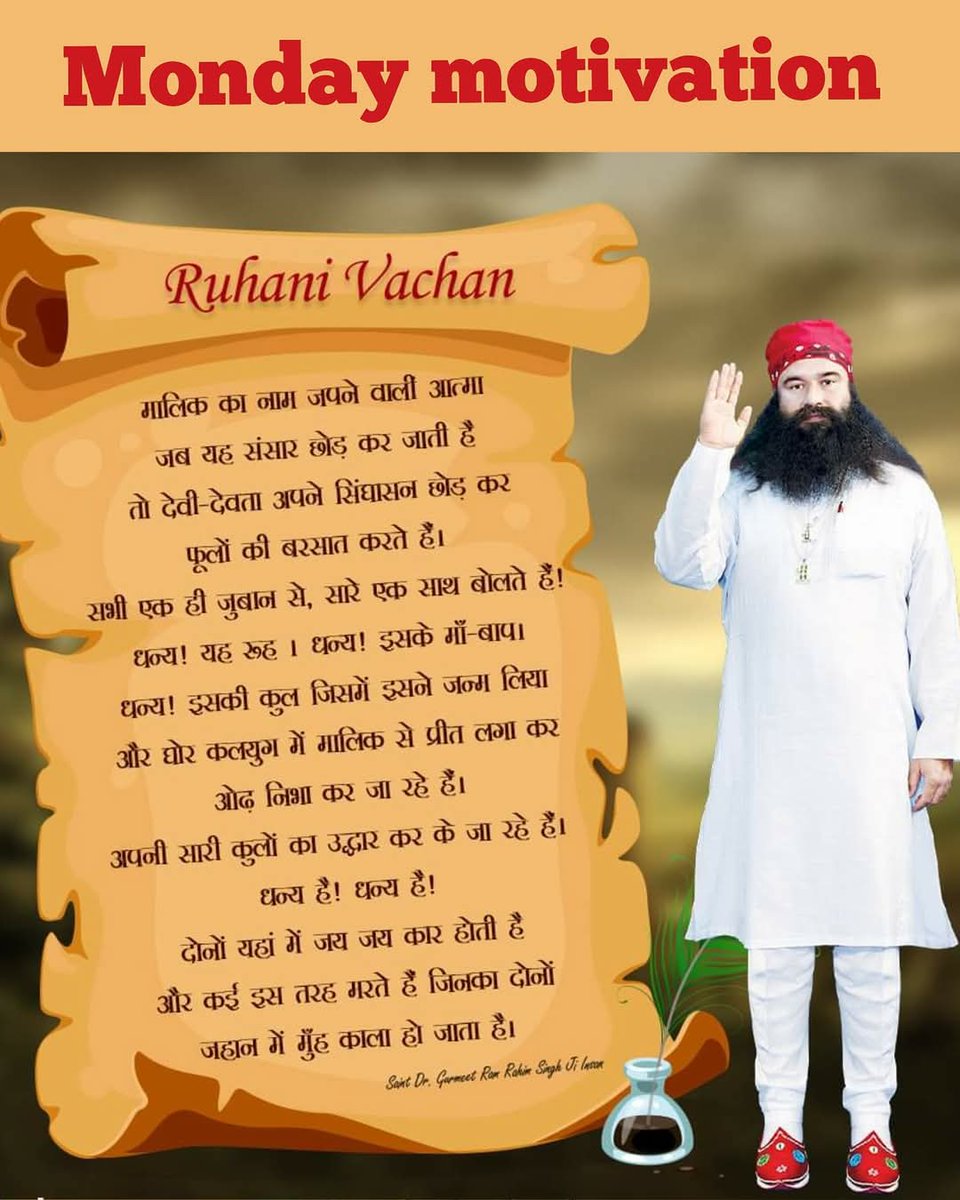 Monday motivation
Ruhani Vachan
मालिक का नाम जपने वाली आत्मा
जब यह संसार छोड़ कर जाती है
तो देवी-देवता अपने सिंघासन छोड़ कर
फूलों की बरसात करते हैं।
सभी एक ही जुबान से, सारे एक साथ बोलते हैं!
धन्य! यह रूह । धन्य! इसके माँ-बाप।
धन्य! इसकी कुल जिसमें इसने जन्म लिया
और घोर कलयुग में मालिक से प्रीत लगा कर
ओढ़ निभा कर जा रहे हैं।
अपनी सारी कुलों का उद्धार कर के जा रहे हैं।
धन्य है! धन्य है!
दोनों यहां में जय जय कार होती है
और कई इस तरह मरते हैं जिनका दोनों
जहान में मुँह काला हो जाता है।
Saint Dr. Gurmeet Ram Rahim Singh Ji Insan